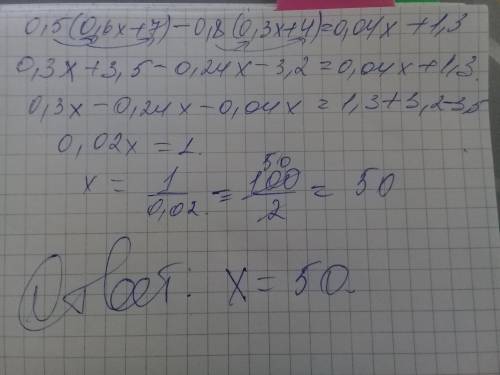 0,5(0,6x+7)-0,8(0,3x+4)=0,04x+1,3
0,3x+3,5-0,24x-3,2=0,04x+1,3.
0,3x-0,24x-0,04x=1,3+3,2-3,5
0,02x=1.
x = 1/0,02 = 100/2 = 50
50
Ответ: x=50